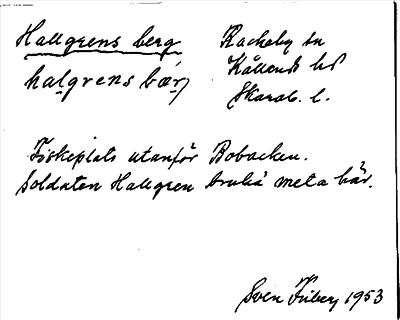 Hallgrens berg
Rackeby sn
halgrens bær
Kållands hd
Skarab. l.
Fiskeplats utanför Bobacken.
Soldaten Hallgren bruka meta här.
Sven Friberg 1953